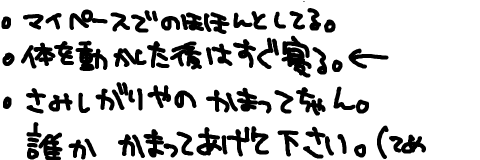 。マイペースでのほほんとしてる。
。体を動かした後はすぐ寝る。←
・さみしがりやの かまってちゃん。
誰か かまってあげて下さい。(てめ